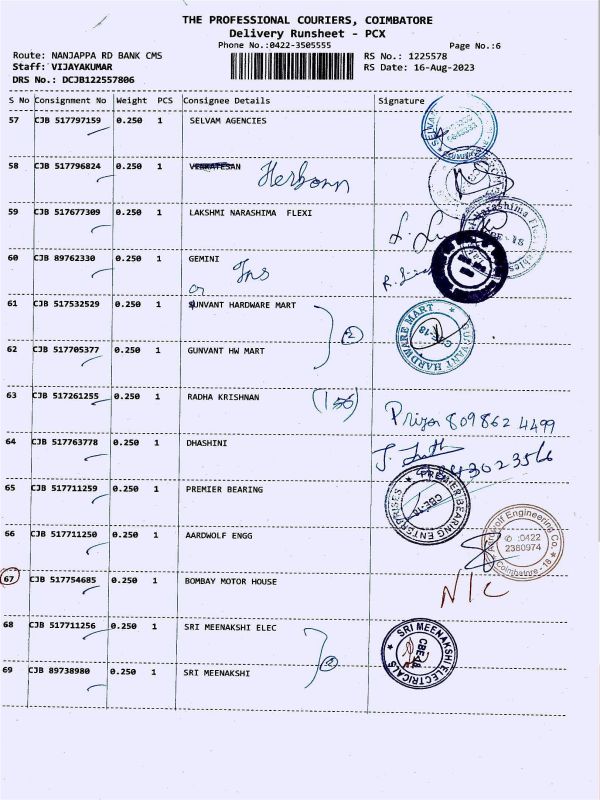 THE PROFESSIONAL COURIERS, COIMBATORE
Delivery Runsheet - PCX
Phone No.:0422-3505555 Page No.:6
Route: NANJAPPA RD BANK CMS RS No.: 1225578
Staff: VIJAYAKUMAR RS Date: 16-Aug-2023
DRS No.: DCJB122557806
S No Consignment No Weight PCS Consignee Details Signature
57 CJB 517797159 0.250 1 SELVAM AGENCIES
58 CJB 517796824 0.250 1 VENKATESAN
59 CJB 517677309 0.250 1 LAKSHMI NARASHIMA FLEXI
60 CJB 89762330 0.250 1 GEMINI
61 CJB 517532529 0.250 1 GUNVANT HARDWARE MART
HARDWARE MART
GUNVANT
62 CJB 517705377 0.250 1 GUNVANT HW MART
63 CJB 517261255 0.250 1 RADHA KRISHNAN
Priya 809862 4499
64 CJB 517763778 0.250 1 DHASHINI
65 CJB 517711259 0.250 1 PREMIER BEARING
PREMIER BEARING ENTERPRISES
66 CJB 517711250 0.250 1 AARDWOLF ENGG
Aardwolf Engineering Co.
✆ :0422
2380974
Coimbatore - 18
67 CJB 517754685 0.250 1 BOMBAY MOTOR HOUSE
N/C
68 CJB 517711256 0.250 1 SRI MEENAKSHI ELEC
SRI MEENAKSHI ELECTRICALS
69 CJB 89738980 0.250 1 SRI MEENAKSHI